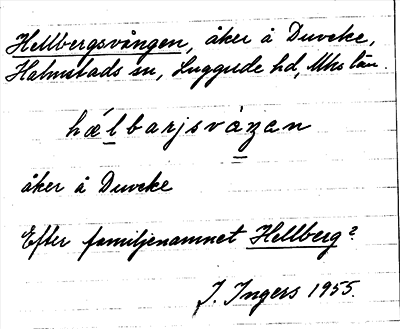 Hellbergsvången, åker å Duveke,
Halmstads sn, Luggude hd, Mhs län.
hælbarjsvåŋan
åker å Duveke
Efter familjenamnet Hellberg?
J. Ingers 1955.